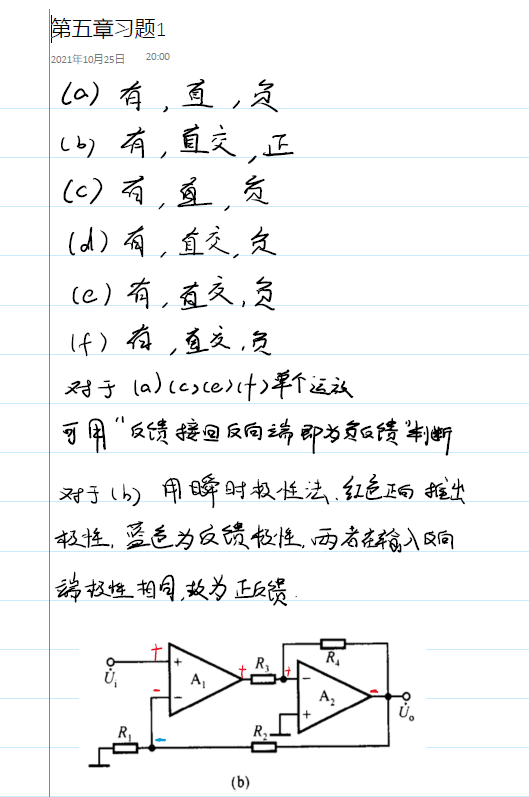 第五章习题1
2021年10月25日 20:00
(a) 有,直,负
(b) 有,直交,正
(c) 有,直,负
(d) 有,直交,负
(e) 有,直交,负
(f) 有,直交,负
对于 (a)(c)(e)(f)单个运放
可用“反馈接回反向端即为负反馈”判断
对于(b) 用瞬时极性法,红色正向推出
极性,蓝色为反馈极性,两者在输入反向
端极性相同,故为正反馈.
+ + R₃ + R₄
U̇ᵢ + A₁ − A₂ − U̇ₒ
− − +
R₁ − R₂
(b)